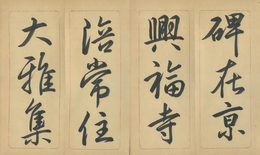 碑在京
興福寺
涪常住
大雅集